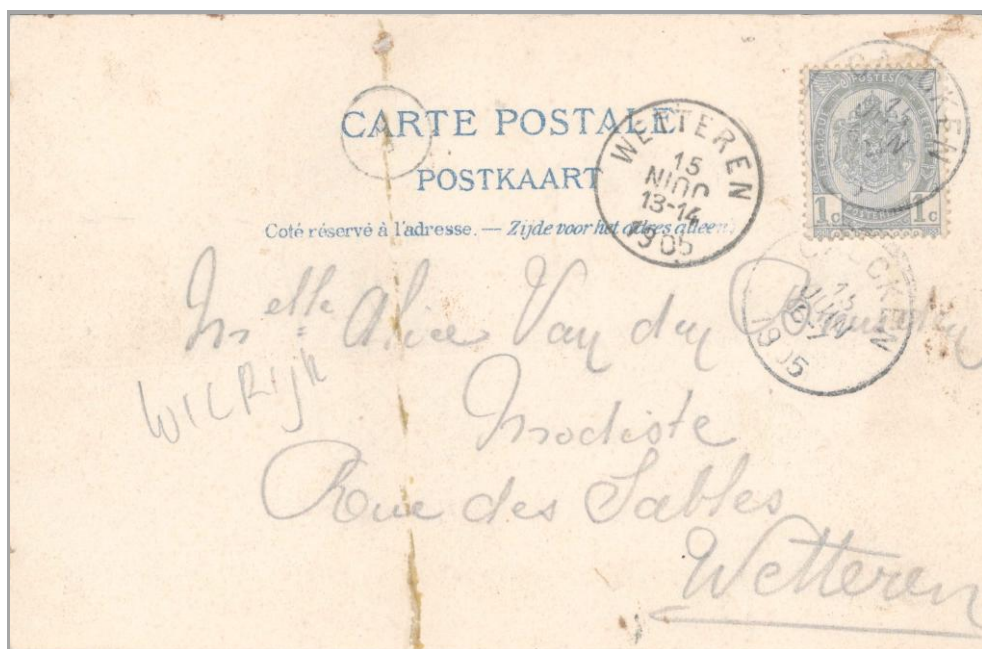 CARTE POSTALE
POSTKAART
Coté réservé à l'adresse. — Zijde voor het adres alleen.
WETTEREN
15
13-14
1905
POSTES
1c 1c
15
JUIN
1905
Melle Alice Van der
WILRIJK
Modiste
Rue des Sables
Wetteren